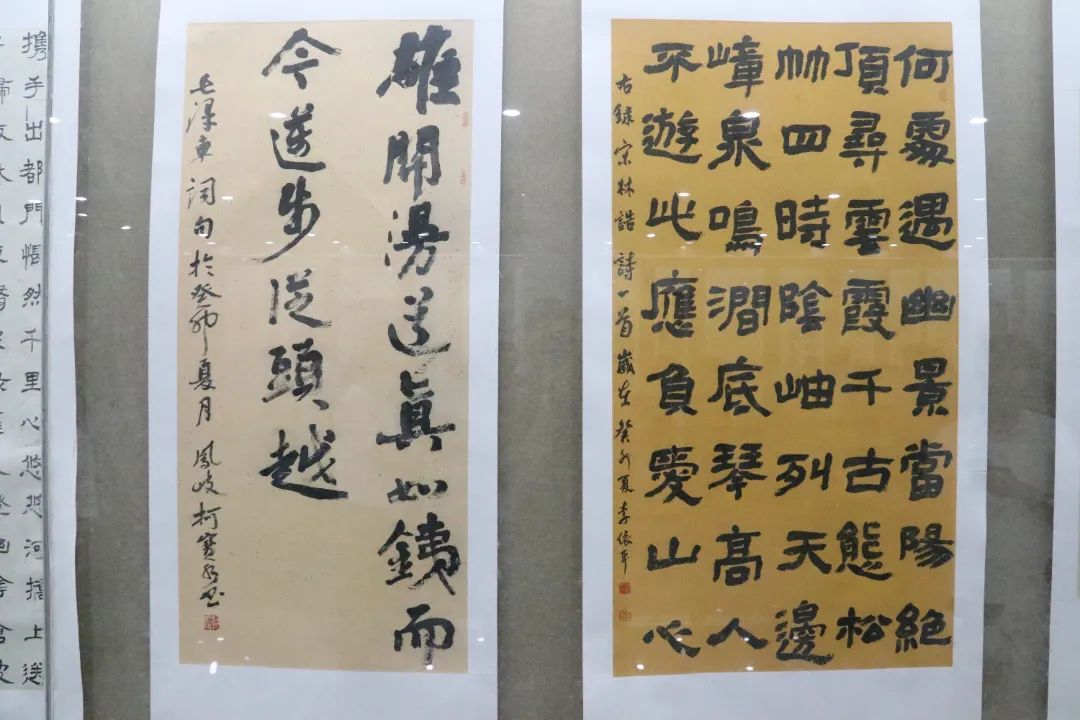 何處遇幽景當陽絶
頂尋雲霞千古態松
竹四時陰岫列天邊
嶂泉鳴澗底琴高人
不遊此應負愛山心
右録宋林誥詩一首歲在癸卯夏李依平
雄關漫道眞如銕而
今邁步從頭越
毛澤東詞句於癸卯夏月鳳岐柯寶書
攜手出都門悵然千里心悠悠河上送